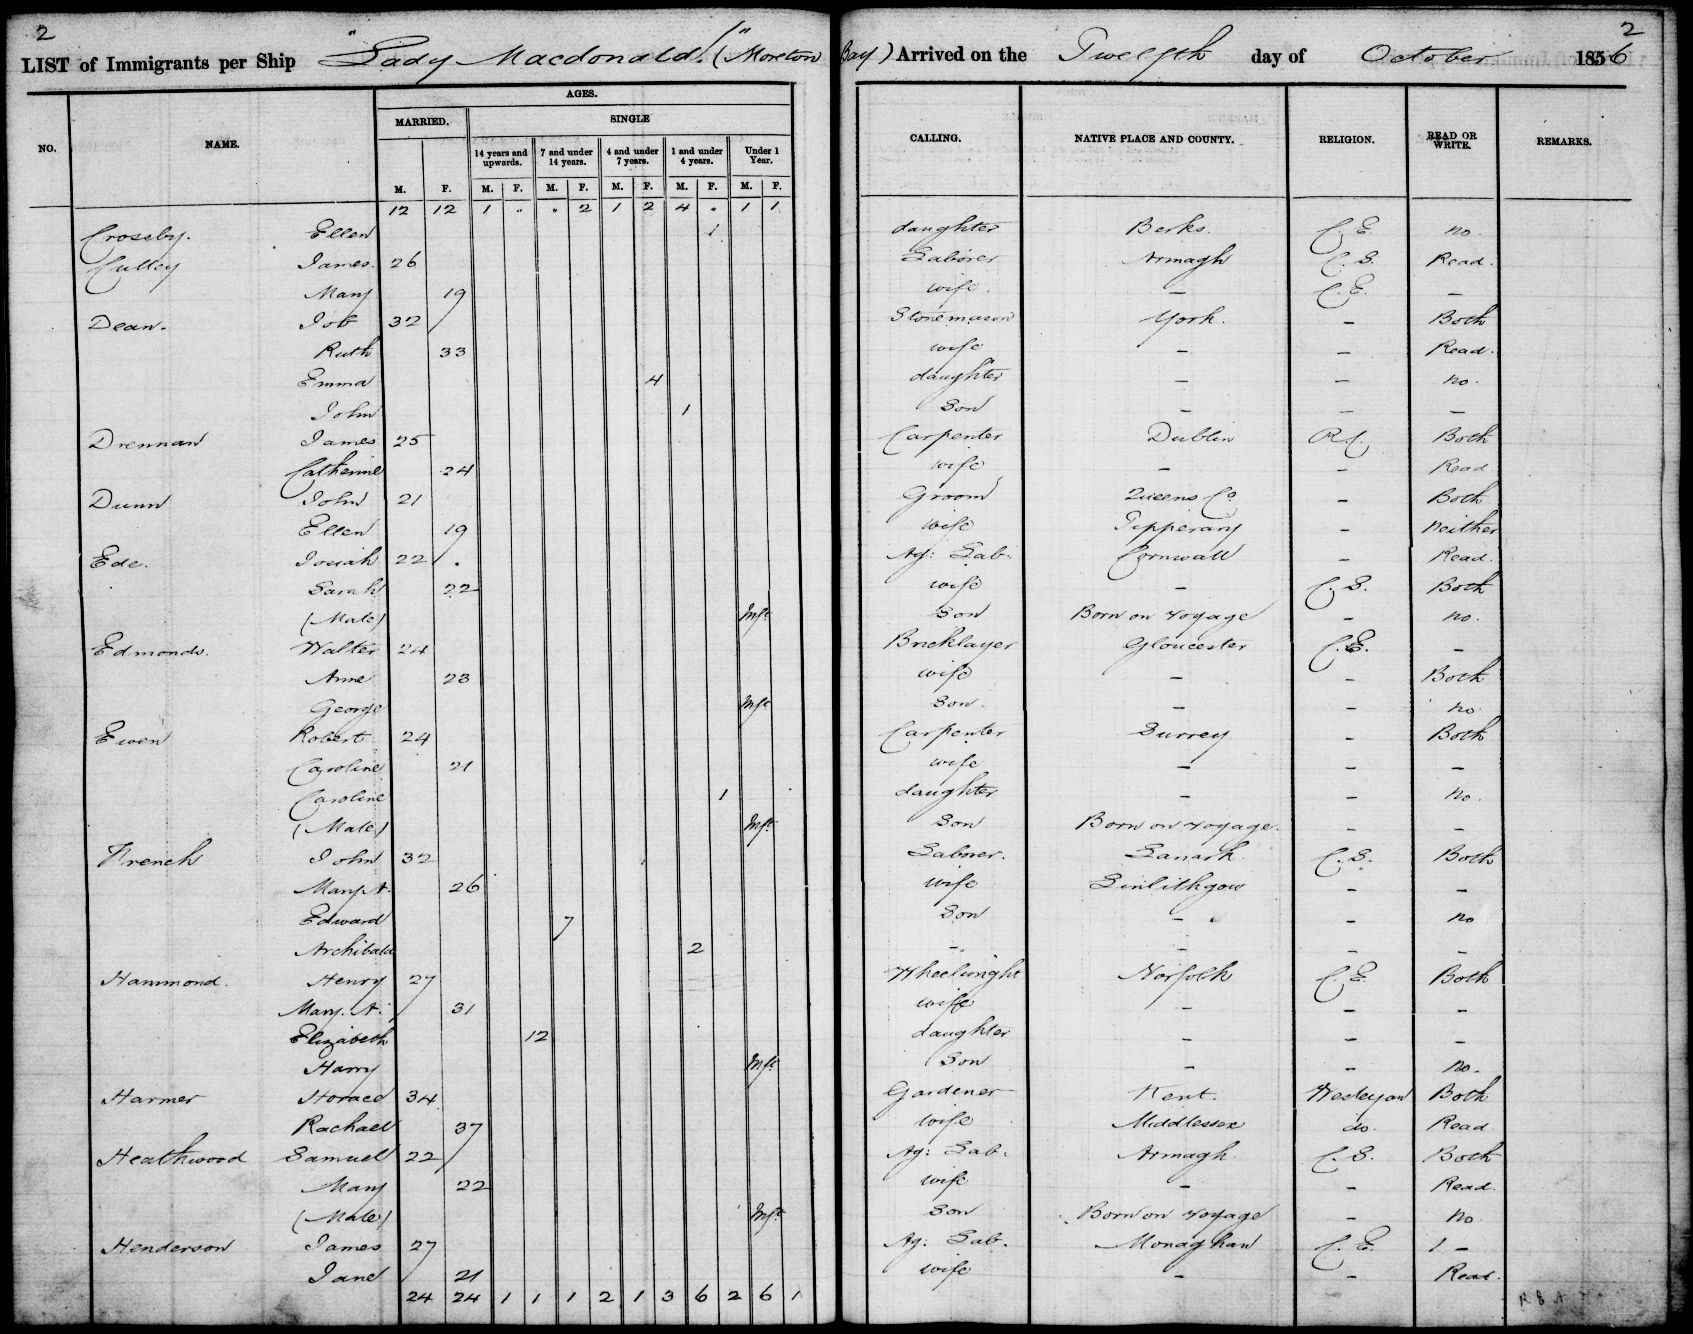 2 2
LIST of Immigrants per Ship "Lady Macdonald" (Moreton Bay) Arrived on the Twelfth day of October 1856
AGES.
MARRIED. SINGLE
NO. NAME. CALLING. NATIVE PLACE AND COUNTY. RELIGION. READ OR WRITE. REMARKS.
14 years and upwards. 7 and under 14 years. 4 and under 7 years. 1 and under 4 years. Under 1 Year.
M. F. M. F. M. F. M. F. M. F. M. F.
12 12 1 " " 2 1 2 4 " 1 1
Crossby. Ellen 1 daughter Berks. C. E. no
Culley James. 26 Laborer Armagh C. S. Read.
Mary 19 wife. — C. E. —
Dean. Job 32 Stonemason York. — Both
Ruth 33 wife — — Read.
Emma 4 daughter — — no.
John 1 Son — — —
Drennan James 25 Carpenter Dublin R.C. Both
Catherine 24 wife — — Read
Dunn John 21 Groom Queens Co — Both
Ellen 19 wife Tipperary — neither
Ede. Josiah 22 Ag: Lab: Cornwall — Read.
Sarah 22 wife — C. S. Both
(Male) Inft Son Born on voyage — no.
Edmonds. Walter 24 Bricklayer Gloucester C. E. —
Anne 23 wife — — Both
George Inft Son. — — no.
Ewen Robert 24 Carpenter Surrey — Both
Caroline 21 wife — — —
Caroline 1 daughter — — no.
(Male) Inft Son Born on voyage. — —
French John 32 Laborer. Lanark C. S. Both
Mary A. 26 wife Linlithgow — —
Edward 7 Son — — no
Archibald 2 — — — —
Hammond. Henry 27 Wheelwright Norfolk C. E. Both
Mary. A. 31 wife — — —
Elizabeth 12 daughter — — —
Harry Inft Son — — no.
Harmer Horace 34 Gardener Kent. Wesleyan Both
Rachael 37 wife Middlesex do. Read
Heathwood Samuel 22 Ag: Lab. Armagh. C. S. Both
Mary 22 wife — — Read.
(Male) Inft Son Born on voyage — no
Henderson James 27 Ag: Lab. Monaghan C. E. 1 —
Jane 21 wife — — Read.
24 24 1 1 1 2 1 3 6 2 6 1